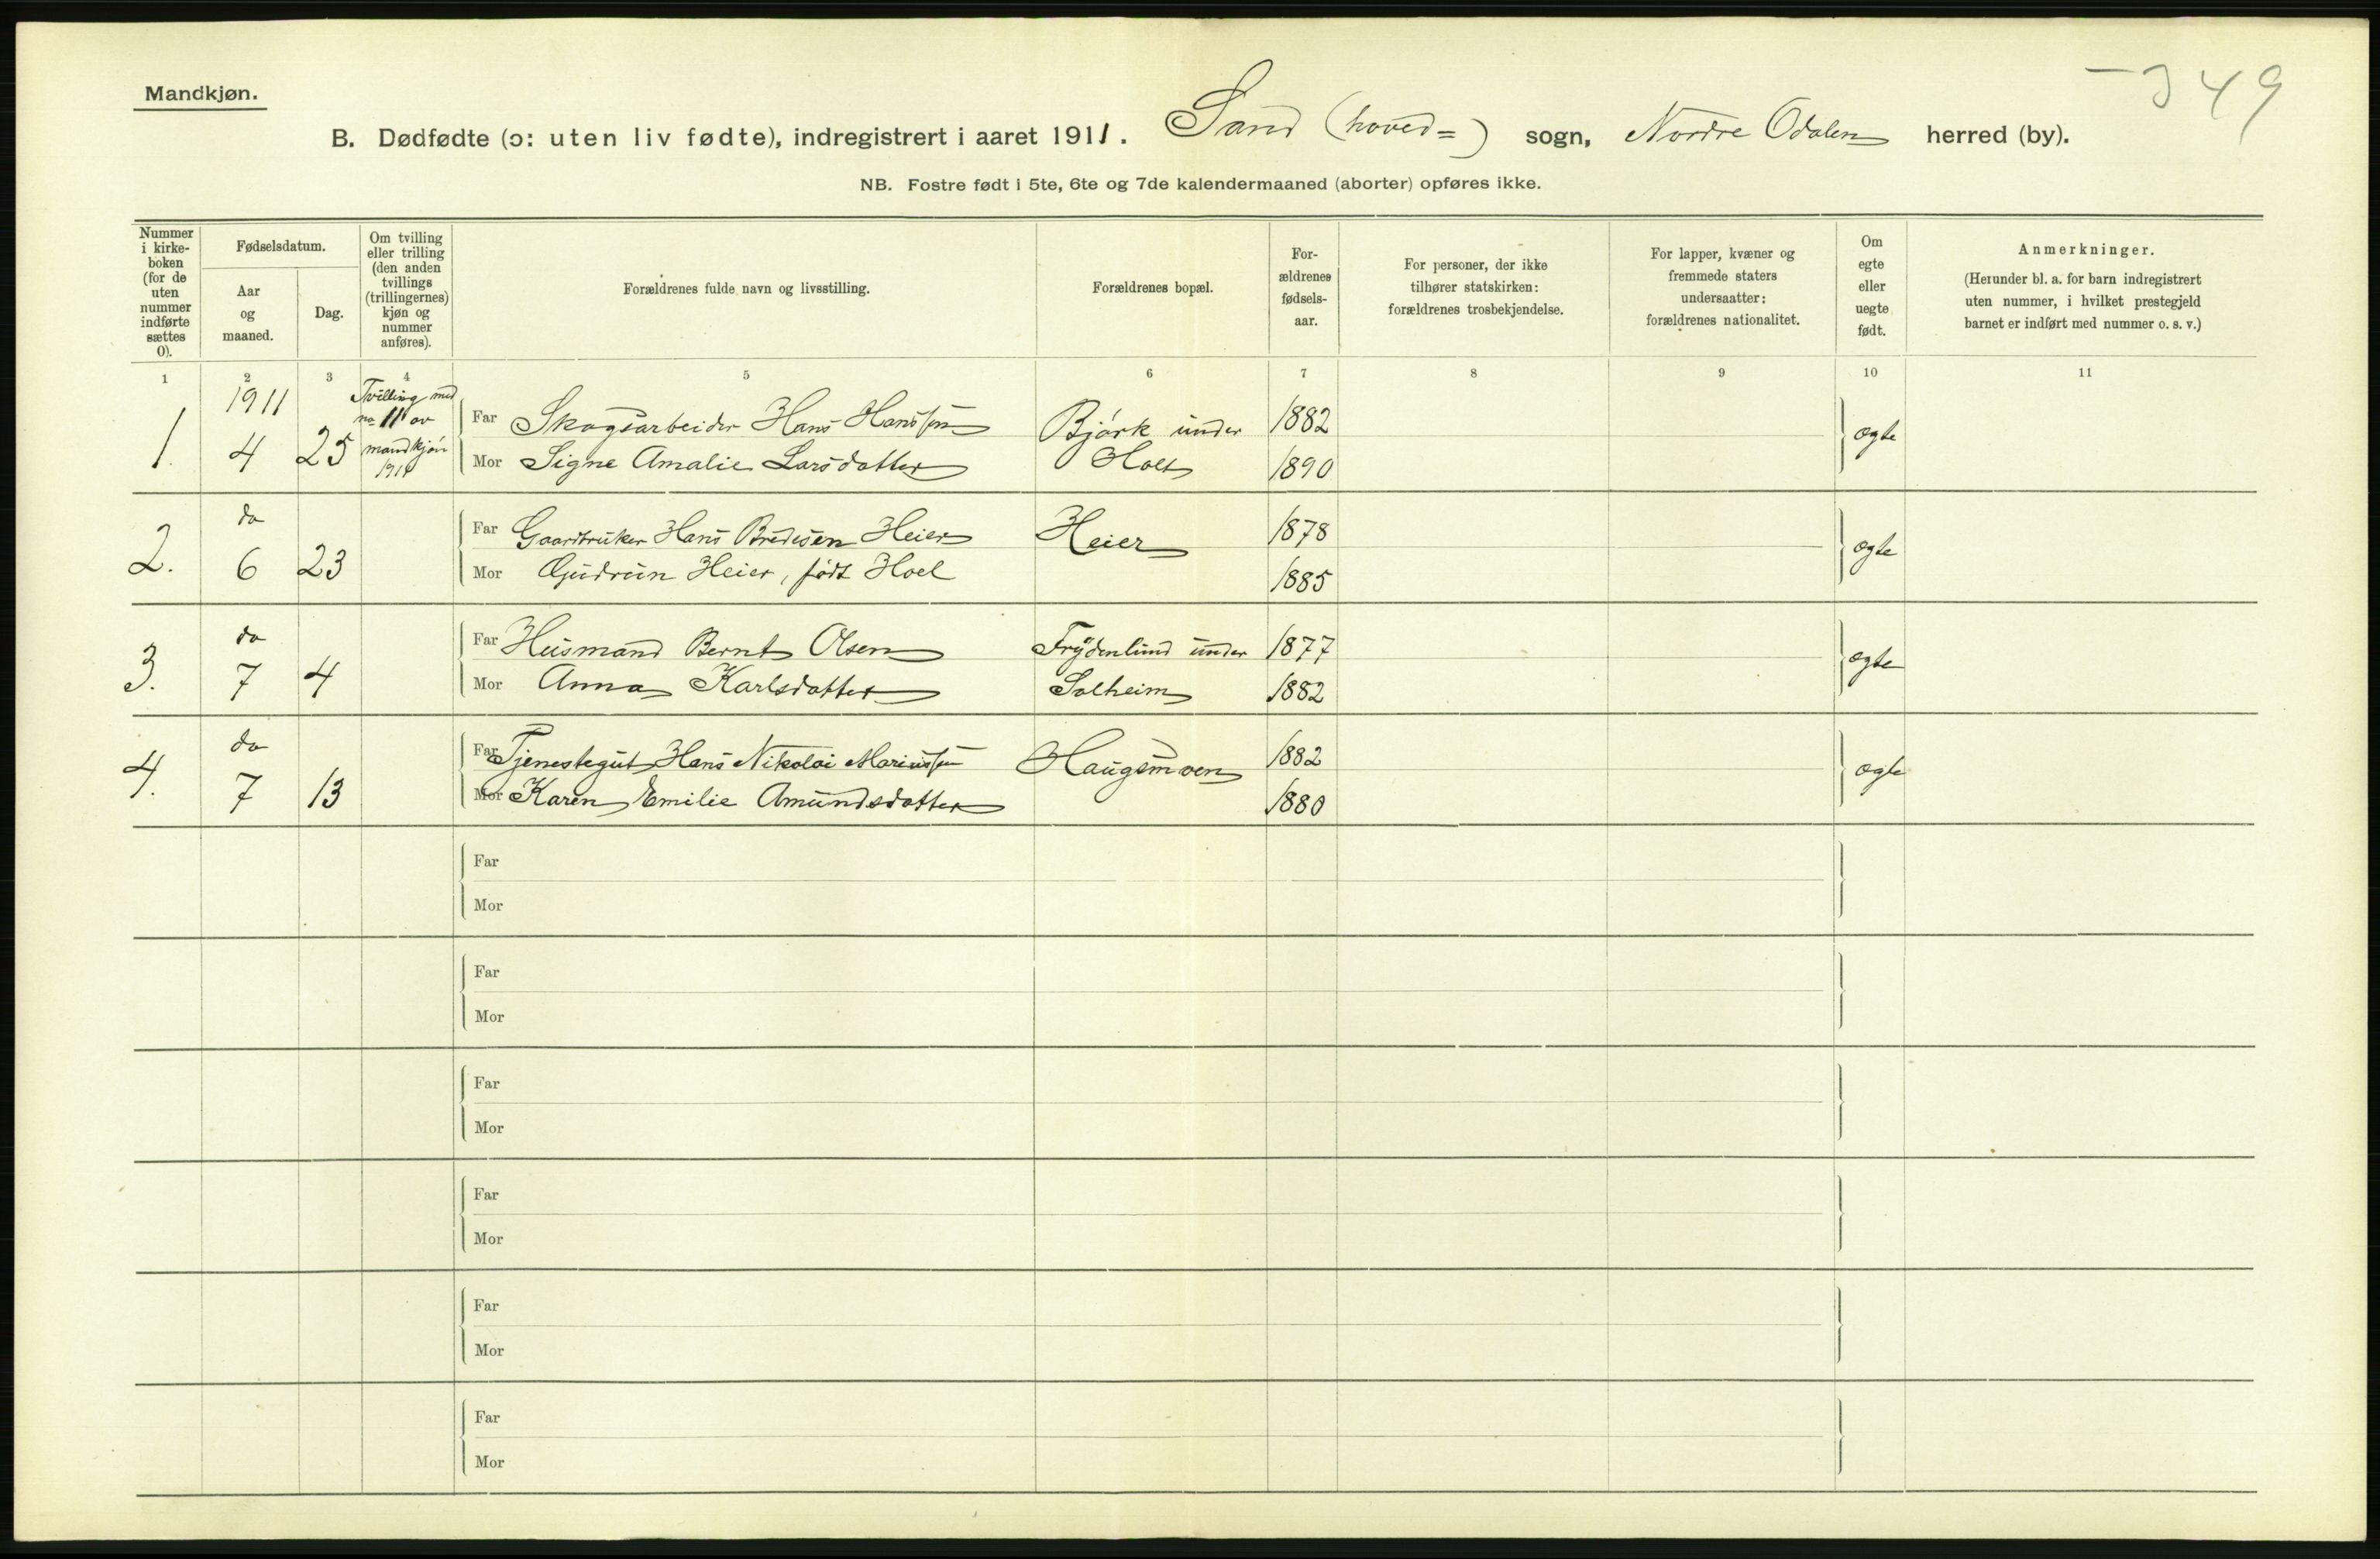 Mandkjøn.
349
B. Dødfødte (ɔ: uten liv fødte), indregistrert i aaret 1911. Sand (hoved=) sogn, Nordre Odalen herred (by).
NB. Fostre født i 5te, 6te og 7de kalendermaaned (aborter) opføres ikke.
Nummer
i kirke-
boken
(for de
uten
nummer
indførte
sættes
0).
Fødselsdatum.
Aar
og
maaned.
Dag.
Om tvilling
eller trilling
(den anden
tvillings
(trillingernes)
kjøn og
nummer
anføres).
Forældrenes fulde navn og livsstilling.
Forældrenes bopæl.
For-
ældrenes
fødsels-
aar.
For personer, der ikke
tilhører statskirken:
forældrenes trosbekjendelse.
For lapper, kvæner og
fremmede staters
undersaatter:
forældrenes nationalitet.
Om
egte
eller
uegte
født.
Anmerkninger.
(Herunder bl. a. for barn indregistrert
uten nummer, i hvilket prestegjeld
barnet er indført med nummer o. s. v.)
1 2 3 4 5 6 7 8 9 10 11
1911
1. 4 25
Tvilling med
no 11 av
mandkjøn
1911
Far Skogsarbeider Hans Hanssen Bjørk under 1882 ægte
Mor Signe Amalie Larsdatter Holt 1890
do
2. 6 23
Far Gaardbruker Hans Bredesen Heier Heier 1878 ægte
Mor Gudrun Heier, født Hoel 1885
do
3. 7 4
Far Husmand Bernt Olsen Frydenlund under 1877 ægte
Mor Anna Karlsdatter Solheim 1882
do
4. 7 13
Far Tjenestegut Hans Nikolai Mariussen Haugsmoen 1882 ægte
Mor Karen Emilie Amundsdatter 1880
Far
Mor
Far
Mor
Far
Mor
Far
Mor
Far
Mor
Far
Mor